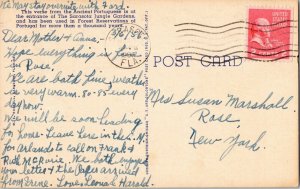 We may stay overnite with Ford.
This verse from the Ancient Portuguese is at
the entrance of The Sarasota Jungle Gardens,
and has been used in Forest Reserves in
Portugal for more than a thousand years.
2/6/58
Dear Mother & Anna:-
Hope everything is fine
in Rose.
We are both fine, weather
is very warm. 80-85 every
day now.
We will be soon leading
for home. Leave here in the A.M
for Orlando to call on Frank &
Ruth McGuire. We both enjoyed
your letter & the Papers arrived
from Irene. Love Leona & Harold.
FLA.
POST CARD
Mrs Susan Marshall
Rose,
New York.